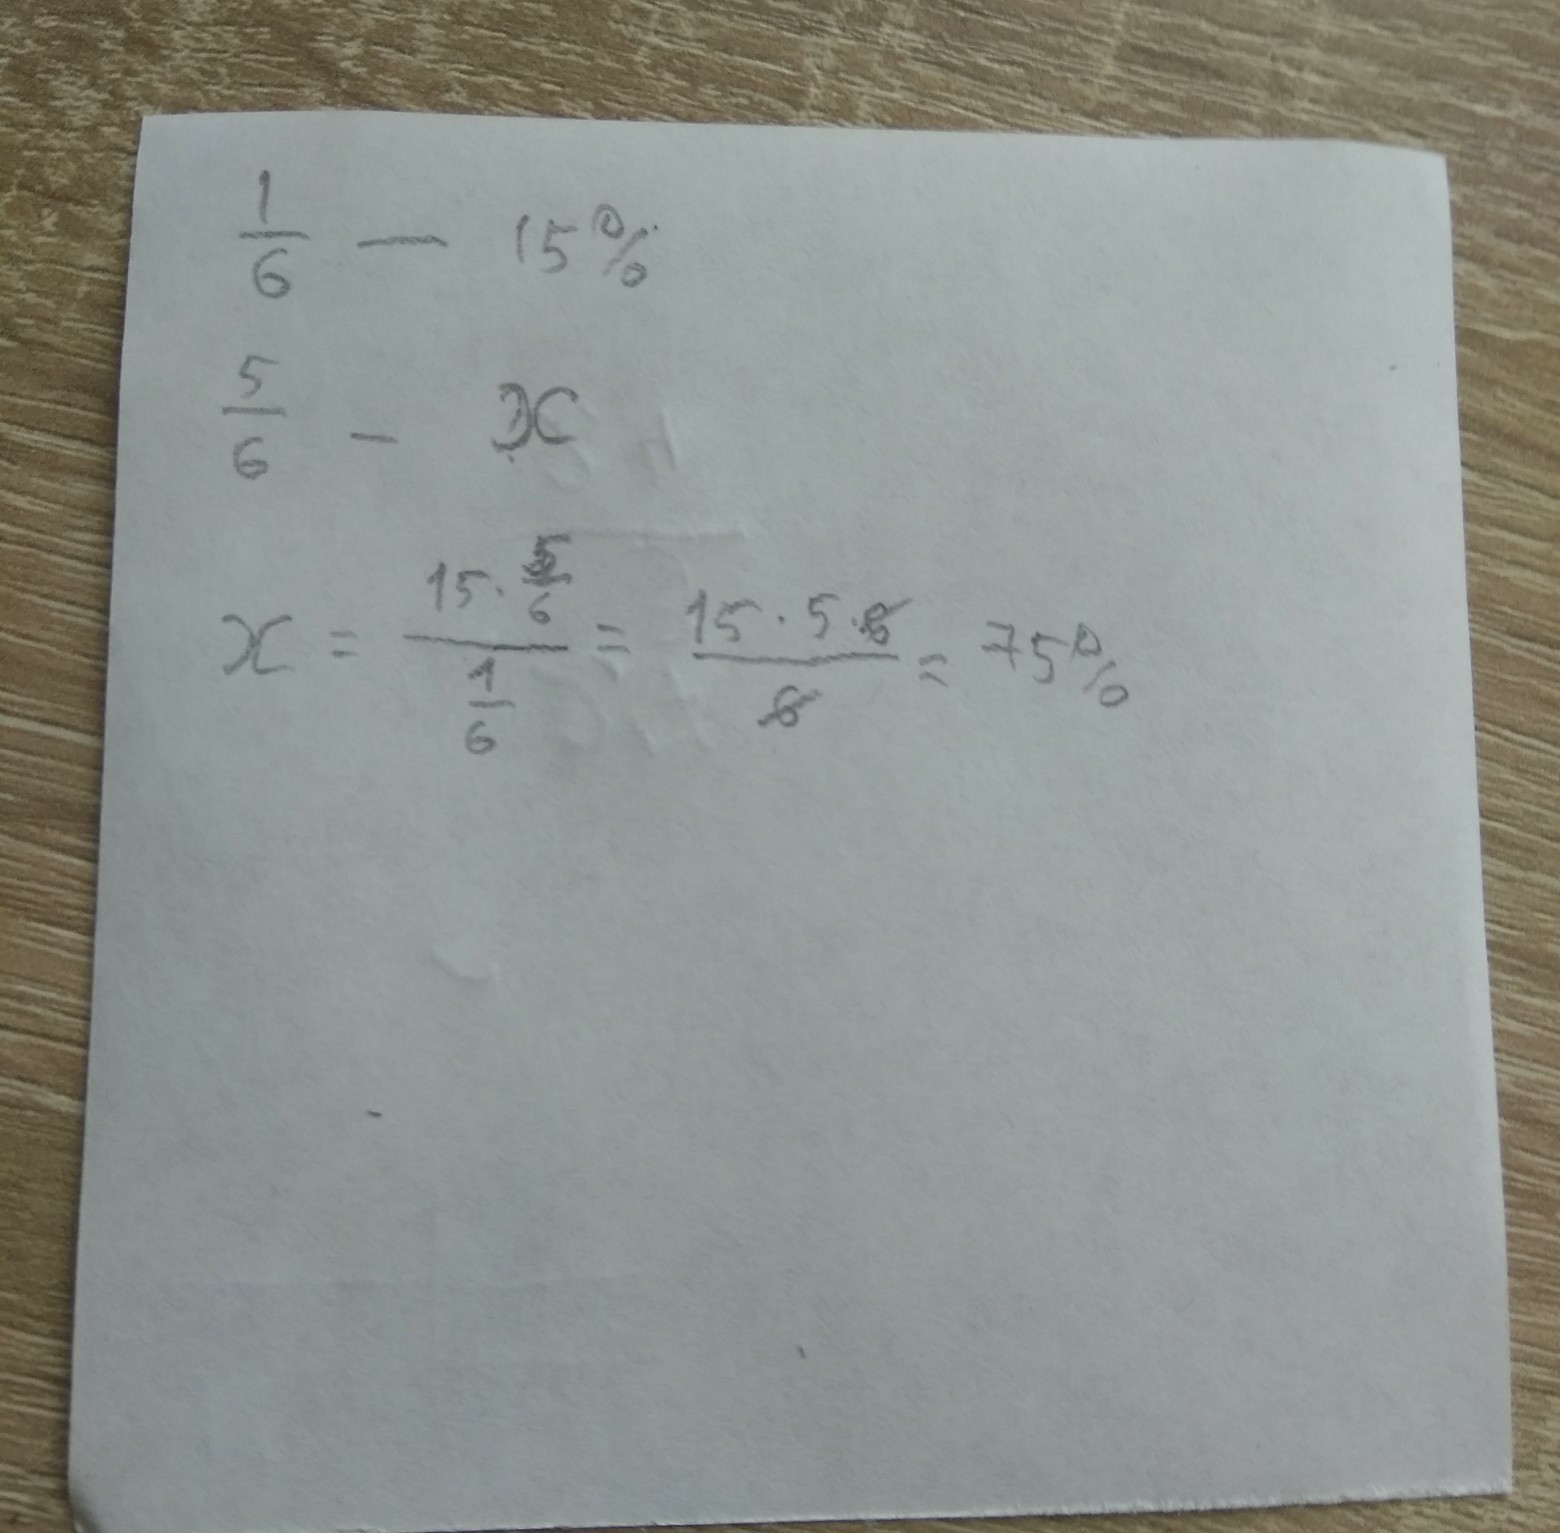 1/6 — 15%
5/6 - x
x = (15 · 5/6) / (1/6) = (15 · 5 · 6) / 6 = 75%